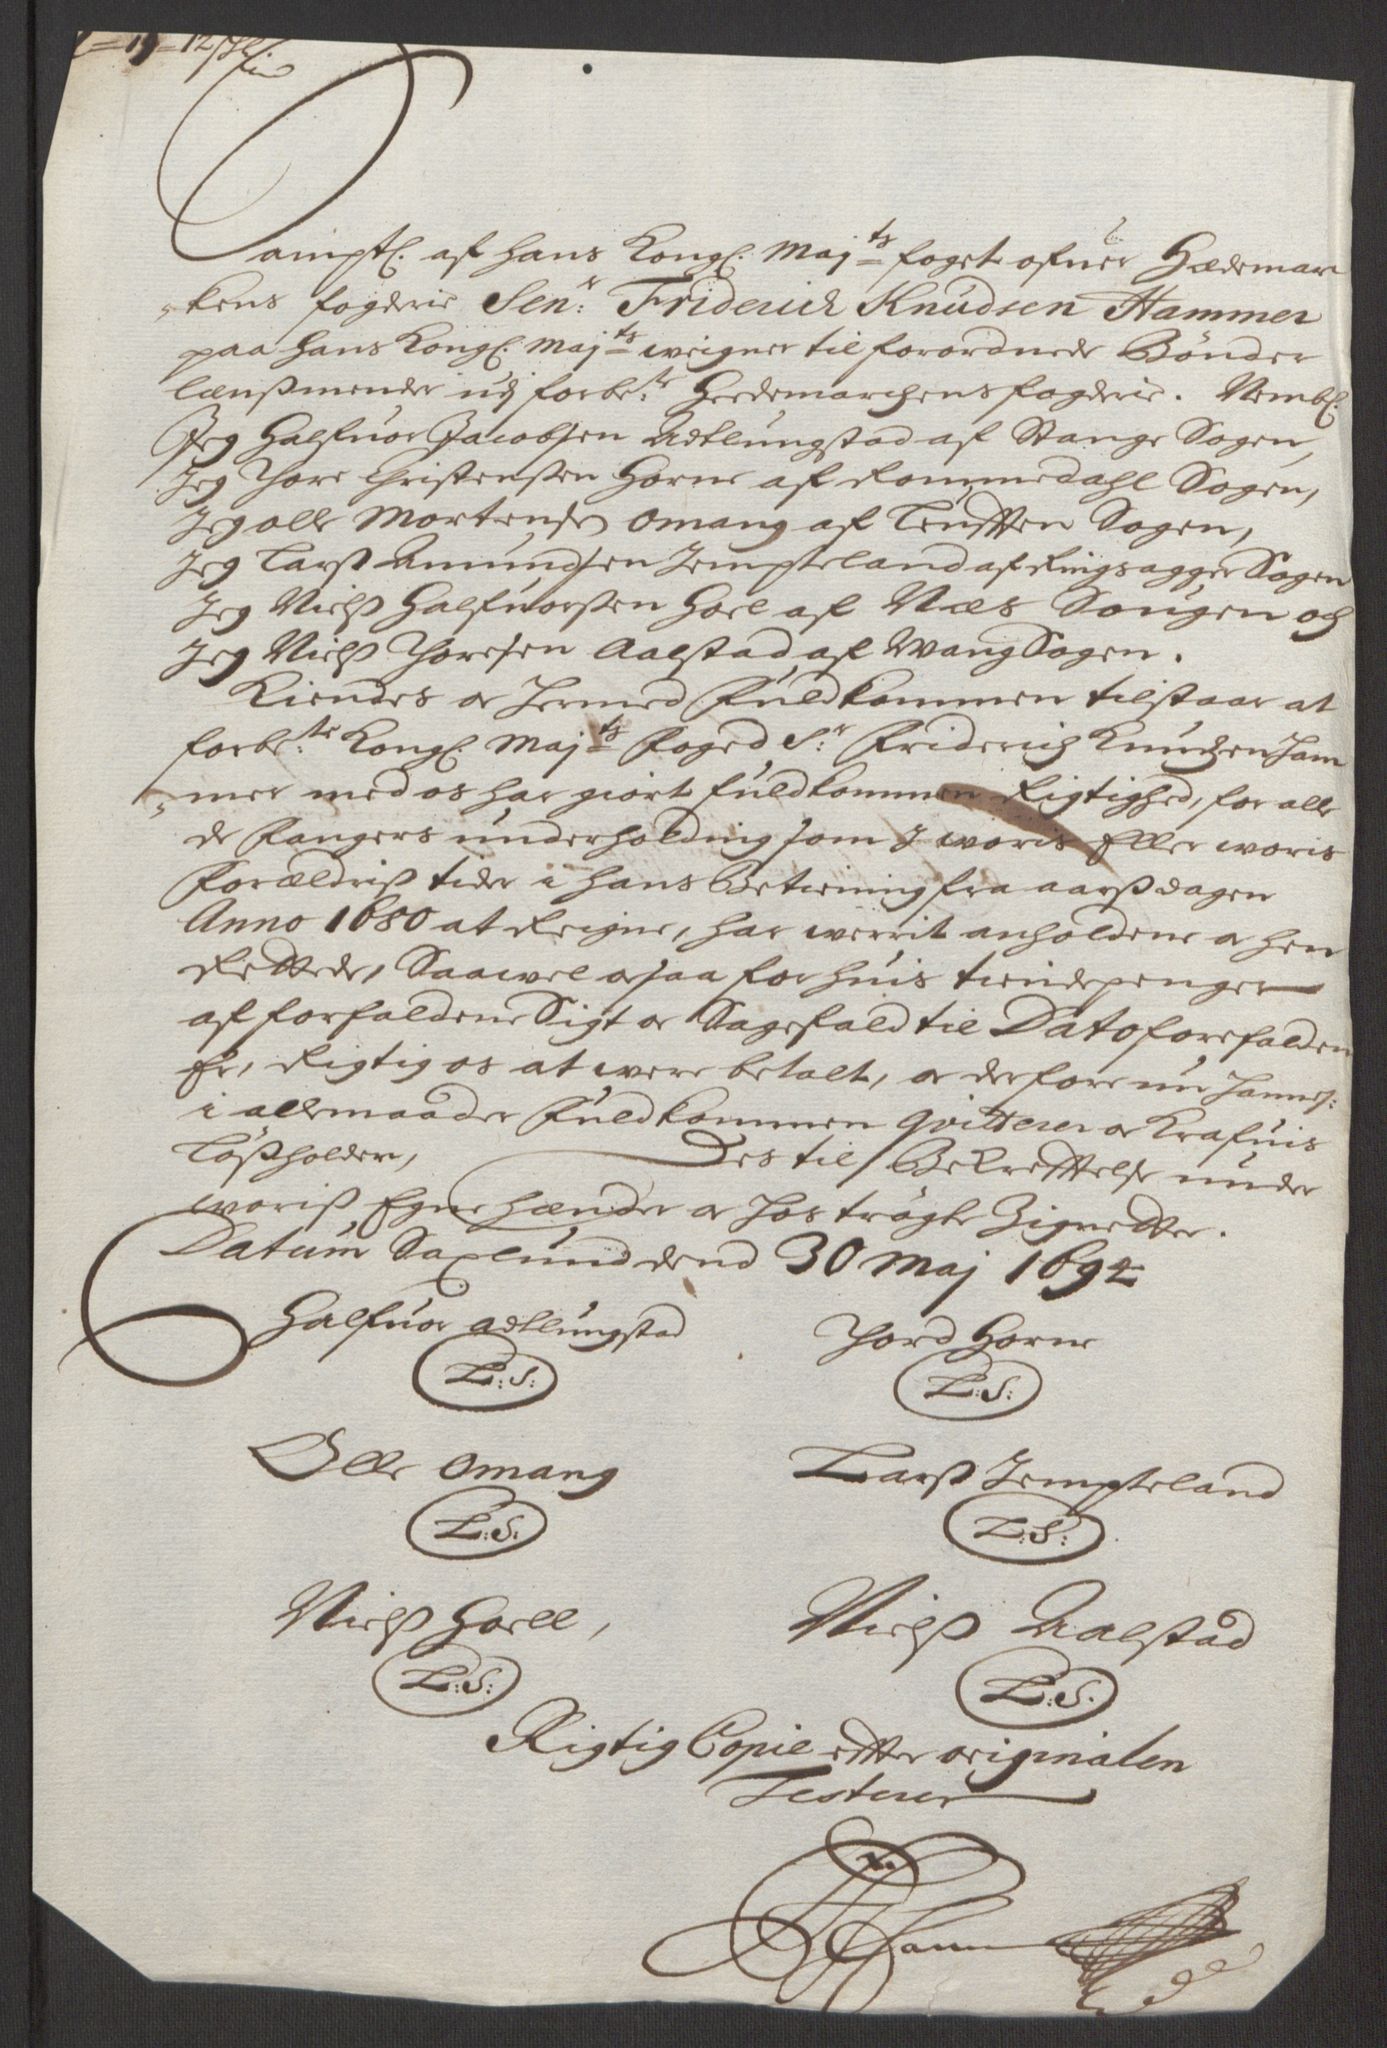 Sampt: af hans Kong: Maj:ts foget ofuer Hædemar
kens fogderie Sen:r Friderich Knudsen Hammer
paa hans Kong: Maj:ts weigner til forordnede Bønder
lænßmender udj forbe:te Hedemarchens fogderie. Nembl:
Jeg Halfuor Jacobsen Adtlungstad af Stange Sogen,
Jeg Thore Christensen Horne af Rommedahl Sogen,
Jeg Olle Mortensen Omang af Leuthen Sogen,
Jeg Larß Amundsen Jempteland af Ringsagger Sogen
Jeg Nielß Halfuorßen Hoel af Næs Sougen och
Jeg Nielß Thoresen Aalstad af Wang Sogen.
Kiendes oc hermed fuldkommen tilstaar at
forbe:te Kong: Maj:ts Foged S:r Friderich Knudzen Ham
mer med os har giort fuldkommen Rigtighed, for alle
de Fangers underholding som J woris Eller woris
Forældriß tider i hans Betiening fra aarß dagen
Anno 1680 at Reigne, har werrit anholdene oc hen
Rettede, Saawel ocsaa for huis tiendepenger
af forfaldene Sigt oc Sagefald til Dato forefalden
Er, Rigtig os at were betalt, oc derfore nu hannem:
i alle maader Fuldkommen qvitterer oc Krafuis
Lößholder, Des til Bekrefftelse under
woriß Egne hænder oc hos trögte Zignetter.
Datum Saxlund dend 30 Maj 1692
Halfuor Adtlungstad Thord Horne
L:S: L:S:
Olle Omang Larß Jempteland
L:S. L:S:
Nielß Hoell, Nielß Aalstad
L:S: L:S.
Rigtig Copie effter originalen
Testerer